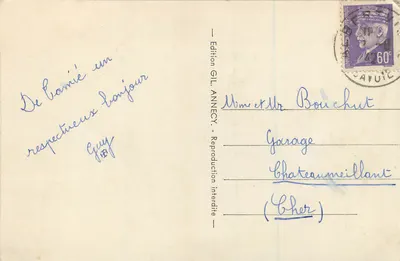 De Camié un
respectueux bonjour
Guy
— Edition GIL, ANNECY. - Reproduction interdite —
60c
SAVOIE
Mme et Mr Bouchut
Garage
Chateaumeillant
(Cher)